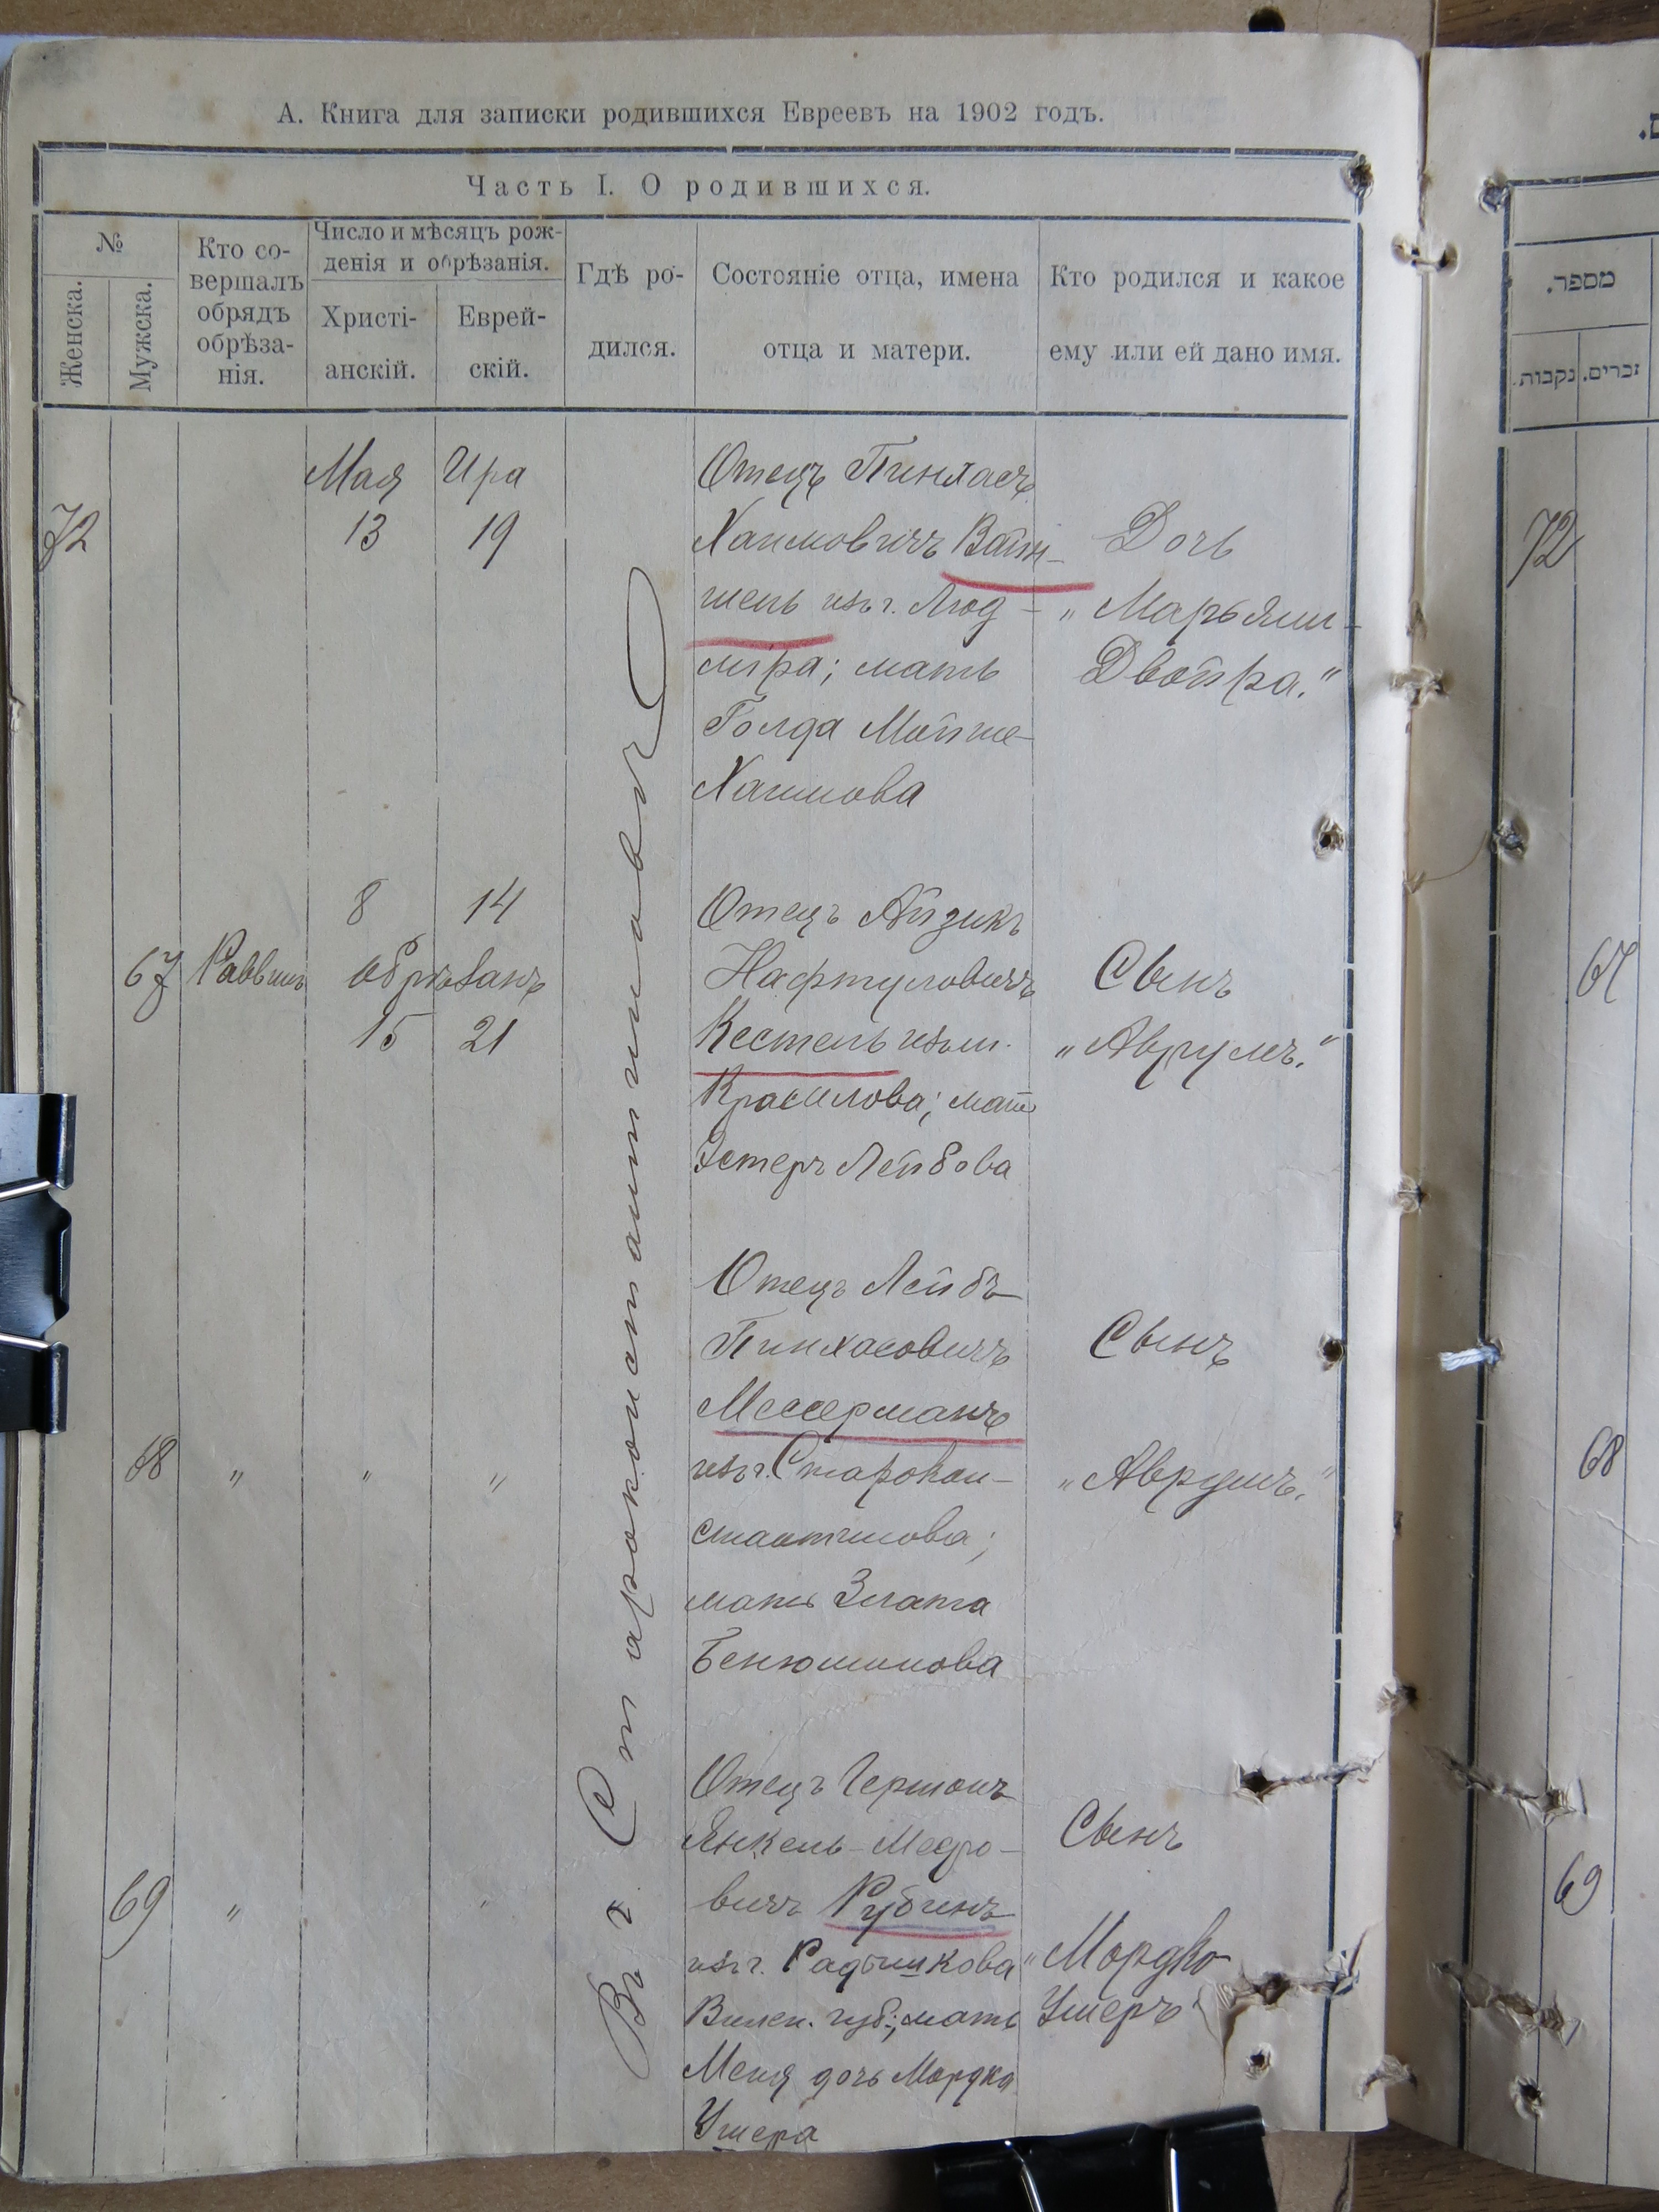 А. Книга для записки родившихся Евреевъ на 1902 годъ.
Часть I. О родившихся.
№
Женска.
Мужска.
Кто со-
вершалъ
обрядъ
обрѣза-
нія.
Число и мѣсяцъ рож-
денія и обрѣзанія.
Христі-
анскій.
Еврей-
скій.
Гдѣ ро-
дился.
Состояніе отца, имена
отца и матери.
Кто родился и какое
ему или ей дано имя.
מספר.
זכרים.
נקבות.
Въ г. Староконстантиновѣ
Мая Ира
72 13 19
Отецъ Пинхасъ
Хаимовичъ Вайн-
шель изъ г. Люд-
мира; мать
Голда Мойше-
Хаимова
Дочь
„Марьям-
Двойра."
72
8 14
67 Раввинъ обрѣзанъ
15 21
Отецъ Айзикъ
Нафтуловичъ
Кестель изъ м.
Красилова; мать
Эстеръ Лейбова
Сынъ
„Аврумъ."
67
68 „ „ „
Отецъ Лейбъ
Пинхасовичъ
Мессерманъ
изъ г. Старокон-
стантинова;
мать Злата
Бенюминова
Сынъ
„Аврумъ."
68
69 „ „
Отецъ Гершонъ
Янкель-Мееро-
вичъ Рубинъ
изъ г. Радошкова
Вилен. губ.; мать
Меня дочь Мордка
Ушера
Сынъ
„Мордко
Ушеръ"
69